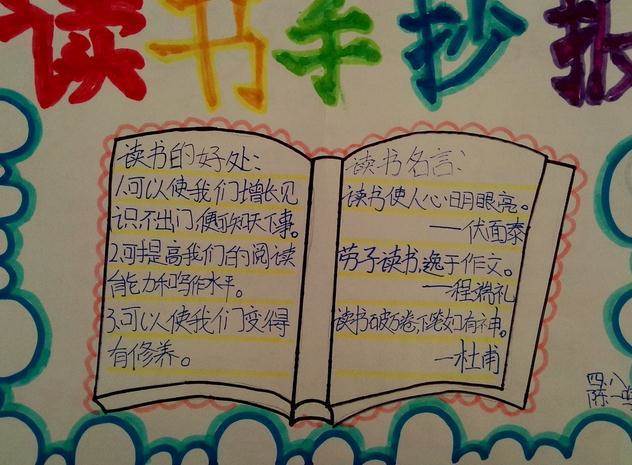 读书手抄报
读书的好处：
1.可以使我们增长见
识,不出门,便可知天下事。
2.可提高我们的阅读
能力和写作水平。
3.可以使我们变得
有修养。
读书名言：
读书使人心明眼亮。
——伏面泰
劳于读书,逸于作文。
——程端礼
读书破万卷,下笔如有神。
—杜甫
四、八
陈一